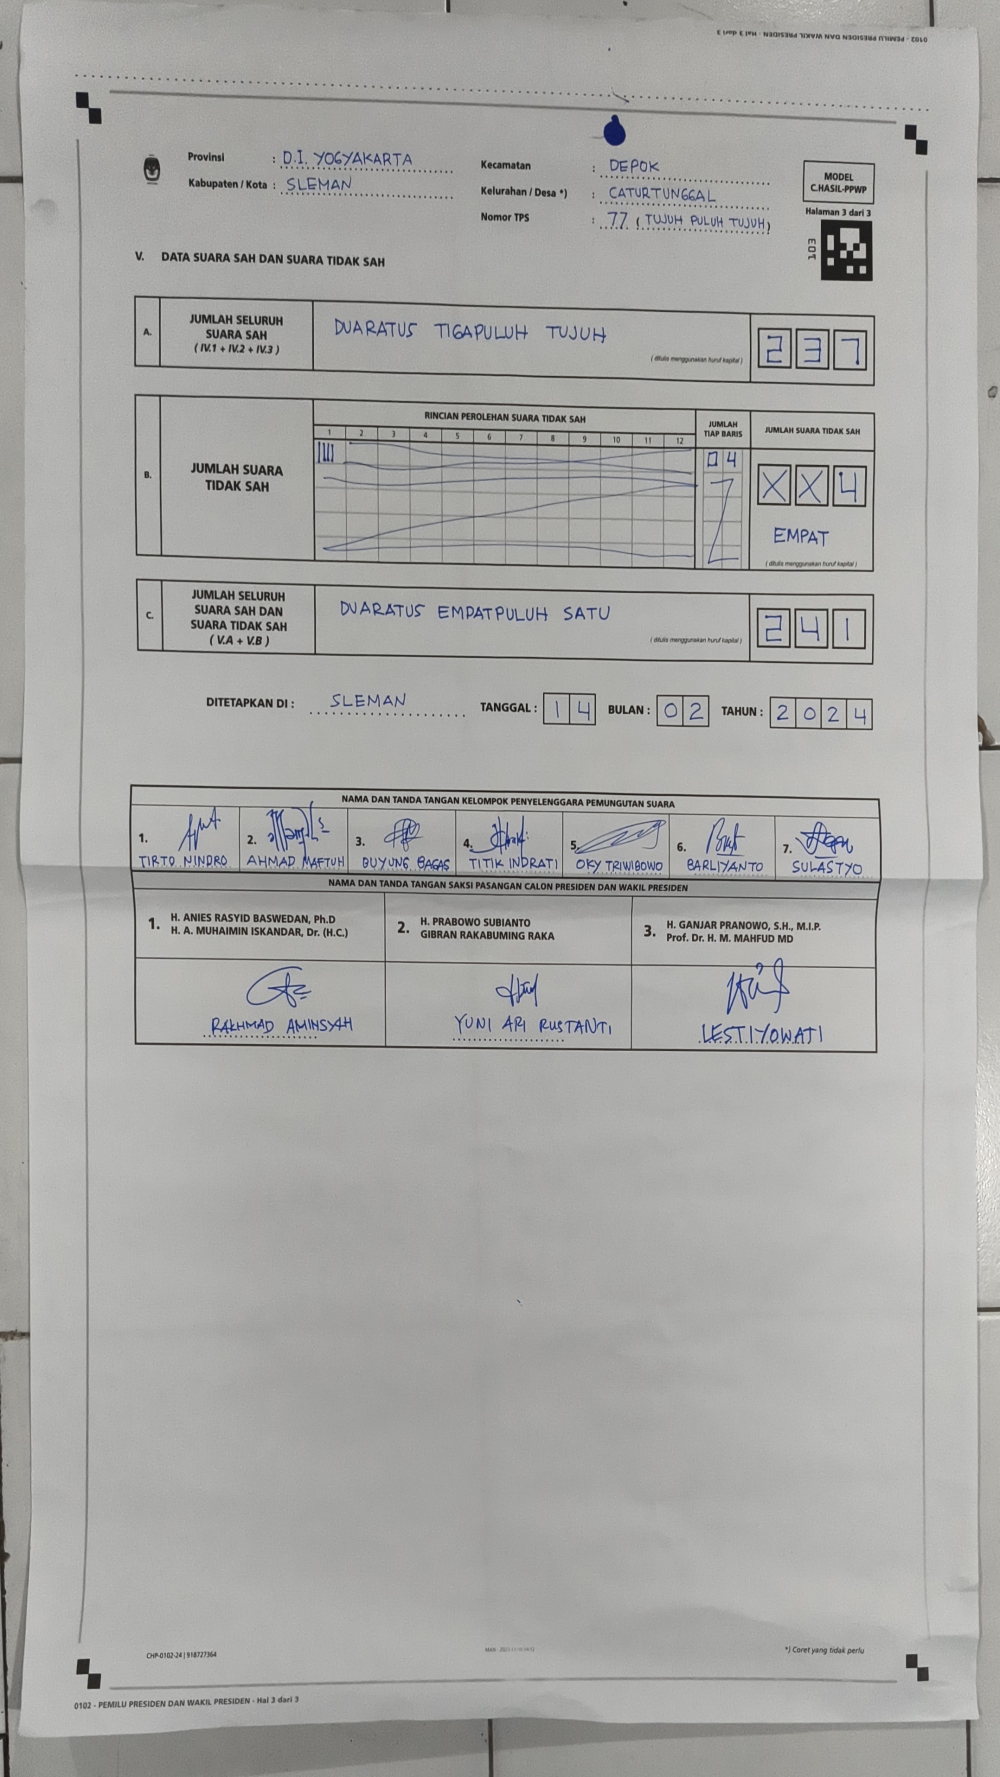 0102 - PEMILU PRESIDEN DAN WAKIL PRESIDEN - Hal 3 dari 3
Provinsi : D.I. YOGYAKARTA
Kabupaten / Kota : SLEMAN
Kecamatan : DEPOK
Kelurahan / Desa *) : CATURTUNGGAL
Nomor TPS : 77 ( TUJUH PULUH TUJUH)
MODEL
C.HASIL-PPWP
Halaman 3 dari 3
103
V. DATA SUARA SAH DAN SUARA TIDAK SAH
A. JUMLAH SELURUH SUARA SAH ( IV.1 + IV.2 + IV.3 )
DUARATUS TIGAPULUH TUJUH
( ditulis menggunakan huruf kapital )
2 3 7
B. JUMLAH SUARA TIDAK SAH
RINCIAN PEROLEHAN SUARA TIDAK SAH
1 2 3 4 5 6 7 8 9 10 11 12
JUMLAH TIAP BARIS
0 4
JUMLAH SUARA TIDAK SAH
X X 4
EMPAT
( ditulis menggunakan huruf kapital )
C. JUMLAH SELURUH SUARA SAH DAN SUARA TIDAK SAH ( V.A + V.B )
DUARATUS EMPATPULUH SATU
( ditulis menggunakan huruf kapital )
2 4 1
DITETAPKAN DI : SLEMAN TANGGAL : 1 4 BULAN : 0 2 TAHUN : 2 0 2 4
NAMA DAN TANDA TANGAN KELOMPOK PENYELENGGARA PEMUNGUTAN SUARA
1. TIRTO NINDRO
2. AHMAD MAFTUH
3. BUYUNG BAGAS
4. TITIK INDRATI
5. OKY TRIWIBOWO
6. BARLIYANTO
7. SULASTYO
NAMA DAN TANDA TANGAN SAKSI PASANGAN CALON PRESIDEN DAN WAKIL PRESIDEN
1. H. ANIES RASYID BASWEDAN, Ph.D
H. A. MUHAIMIN ISKANDAR, Dr. (H.C.)
2. H. PRABOWO SUBIANTO
GIBRAN RAKABUMING RAKA
3. H. GANJAR PRANOWO, S.H., M.I.P.
Prof. Dr. H. M. MAHFUD MD
RAKHMAD AMINSYAH
YUNI ARI RUSTANTI
LESTIYOWATI
CHP-0102-24 | 918727364
*) Coret yang tidak perlu
0102 - PEMILU PRESIDEN DAN WAKIL PRESIDEN - Hal 3 dari 3